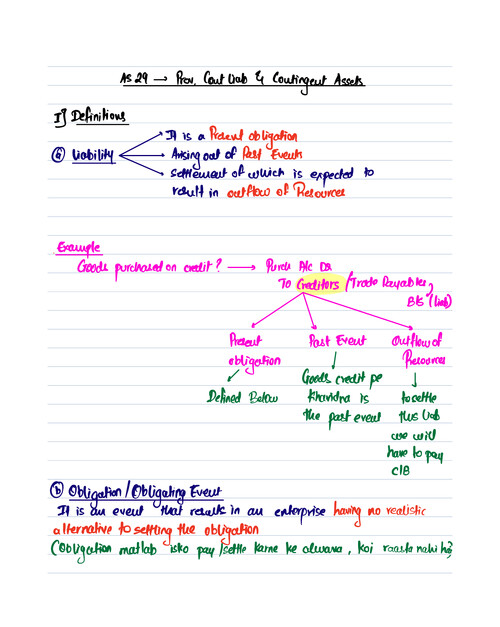 AS 29 → Prov, Cont Liab & Contingent Assets
I] Definitions
→ It is a Present obligation
(a) Liability → Arising out of Past Events
→ Settlement of which is expected to
result in outflow of Resources
Example
Goods purchased on credit? → Purch A/c DR
To Creditors / Trade Payables,
B/S (Liab)
Present Past Event Outflow of
obligation Resources
Defined Below Goods credit pe to settle
Kharidna is this Liab
the past event we will
have to pay
C/B
(b) Obligation / Obligating Event
It is an event that results in an enterprise having no realistic
alternative to settling the obligation
(Obligation matlab isko pay/settle karne ke alwana, koi raasta nahi hai)